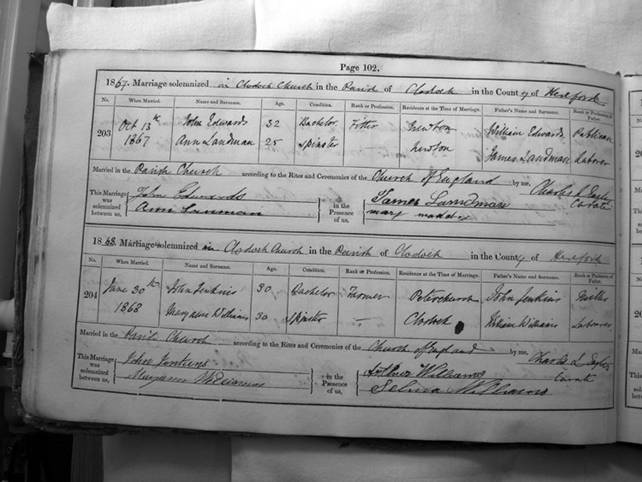 Page 102.
1867. Marriage solemnized in Clodock Church in the Parish of Clodock in the County of Hereford
No. When Married. Name and Surname. Age. Condition. Rank or Profession. Residence at the Time of Marriage. Father's Name and Surname. Rank or Profession of Father.
203 Oct 13th 1867 John Edwards 32 Bachelor Newton William Edwards Publican
Ann Landman 25 Spinster Newton James Landman Laborer
Married in the Parish Church according to the Rites and Ceremonies of the Church of England by me, Charles L.
Curate
This Marriage was solemnized between us, John Edwards
Ann Lanman
in the Presence of us, James Landman
mary
1868. Marriage solemnized in Clodock Church in the Parish of Clodock in the County of Hereford
No. When Married. Name and Surname. Age. Condition. Rank or Profession. Residence at the Time of Marriage. Father's Name and Surname. Rank or Profession of Father.
204 June 30th 1868 John Jenkins 30 Bachelor Farmer Peterchurch John Jenkins
Maryann Williams 30 Spinster – Clodock William Williams Labourer
Married in the Parish Church according to the Rites and Ceremonies of the Church of England by me, Charles L.
Curate
This Marriage was solemnized between us, John Jenkins
Maryann Williams
in the Presence of us, Arthur Williams
Selina Williams